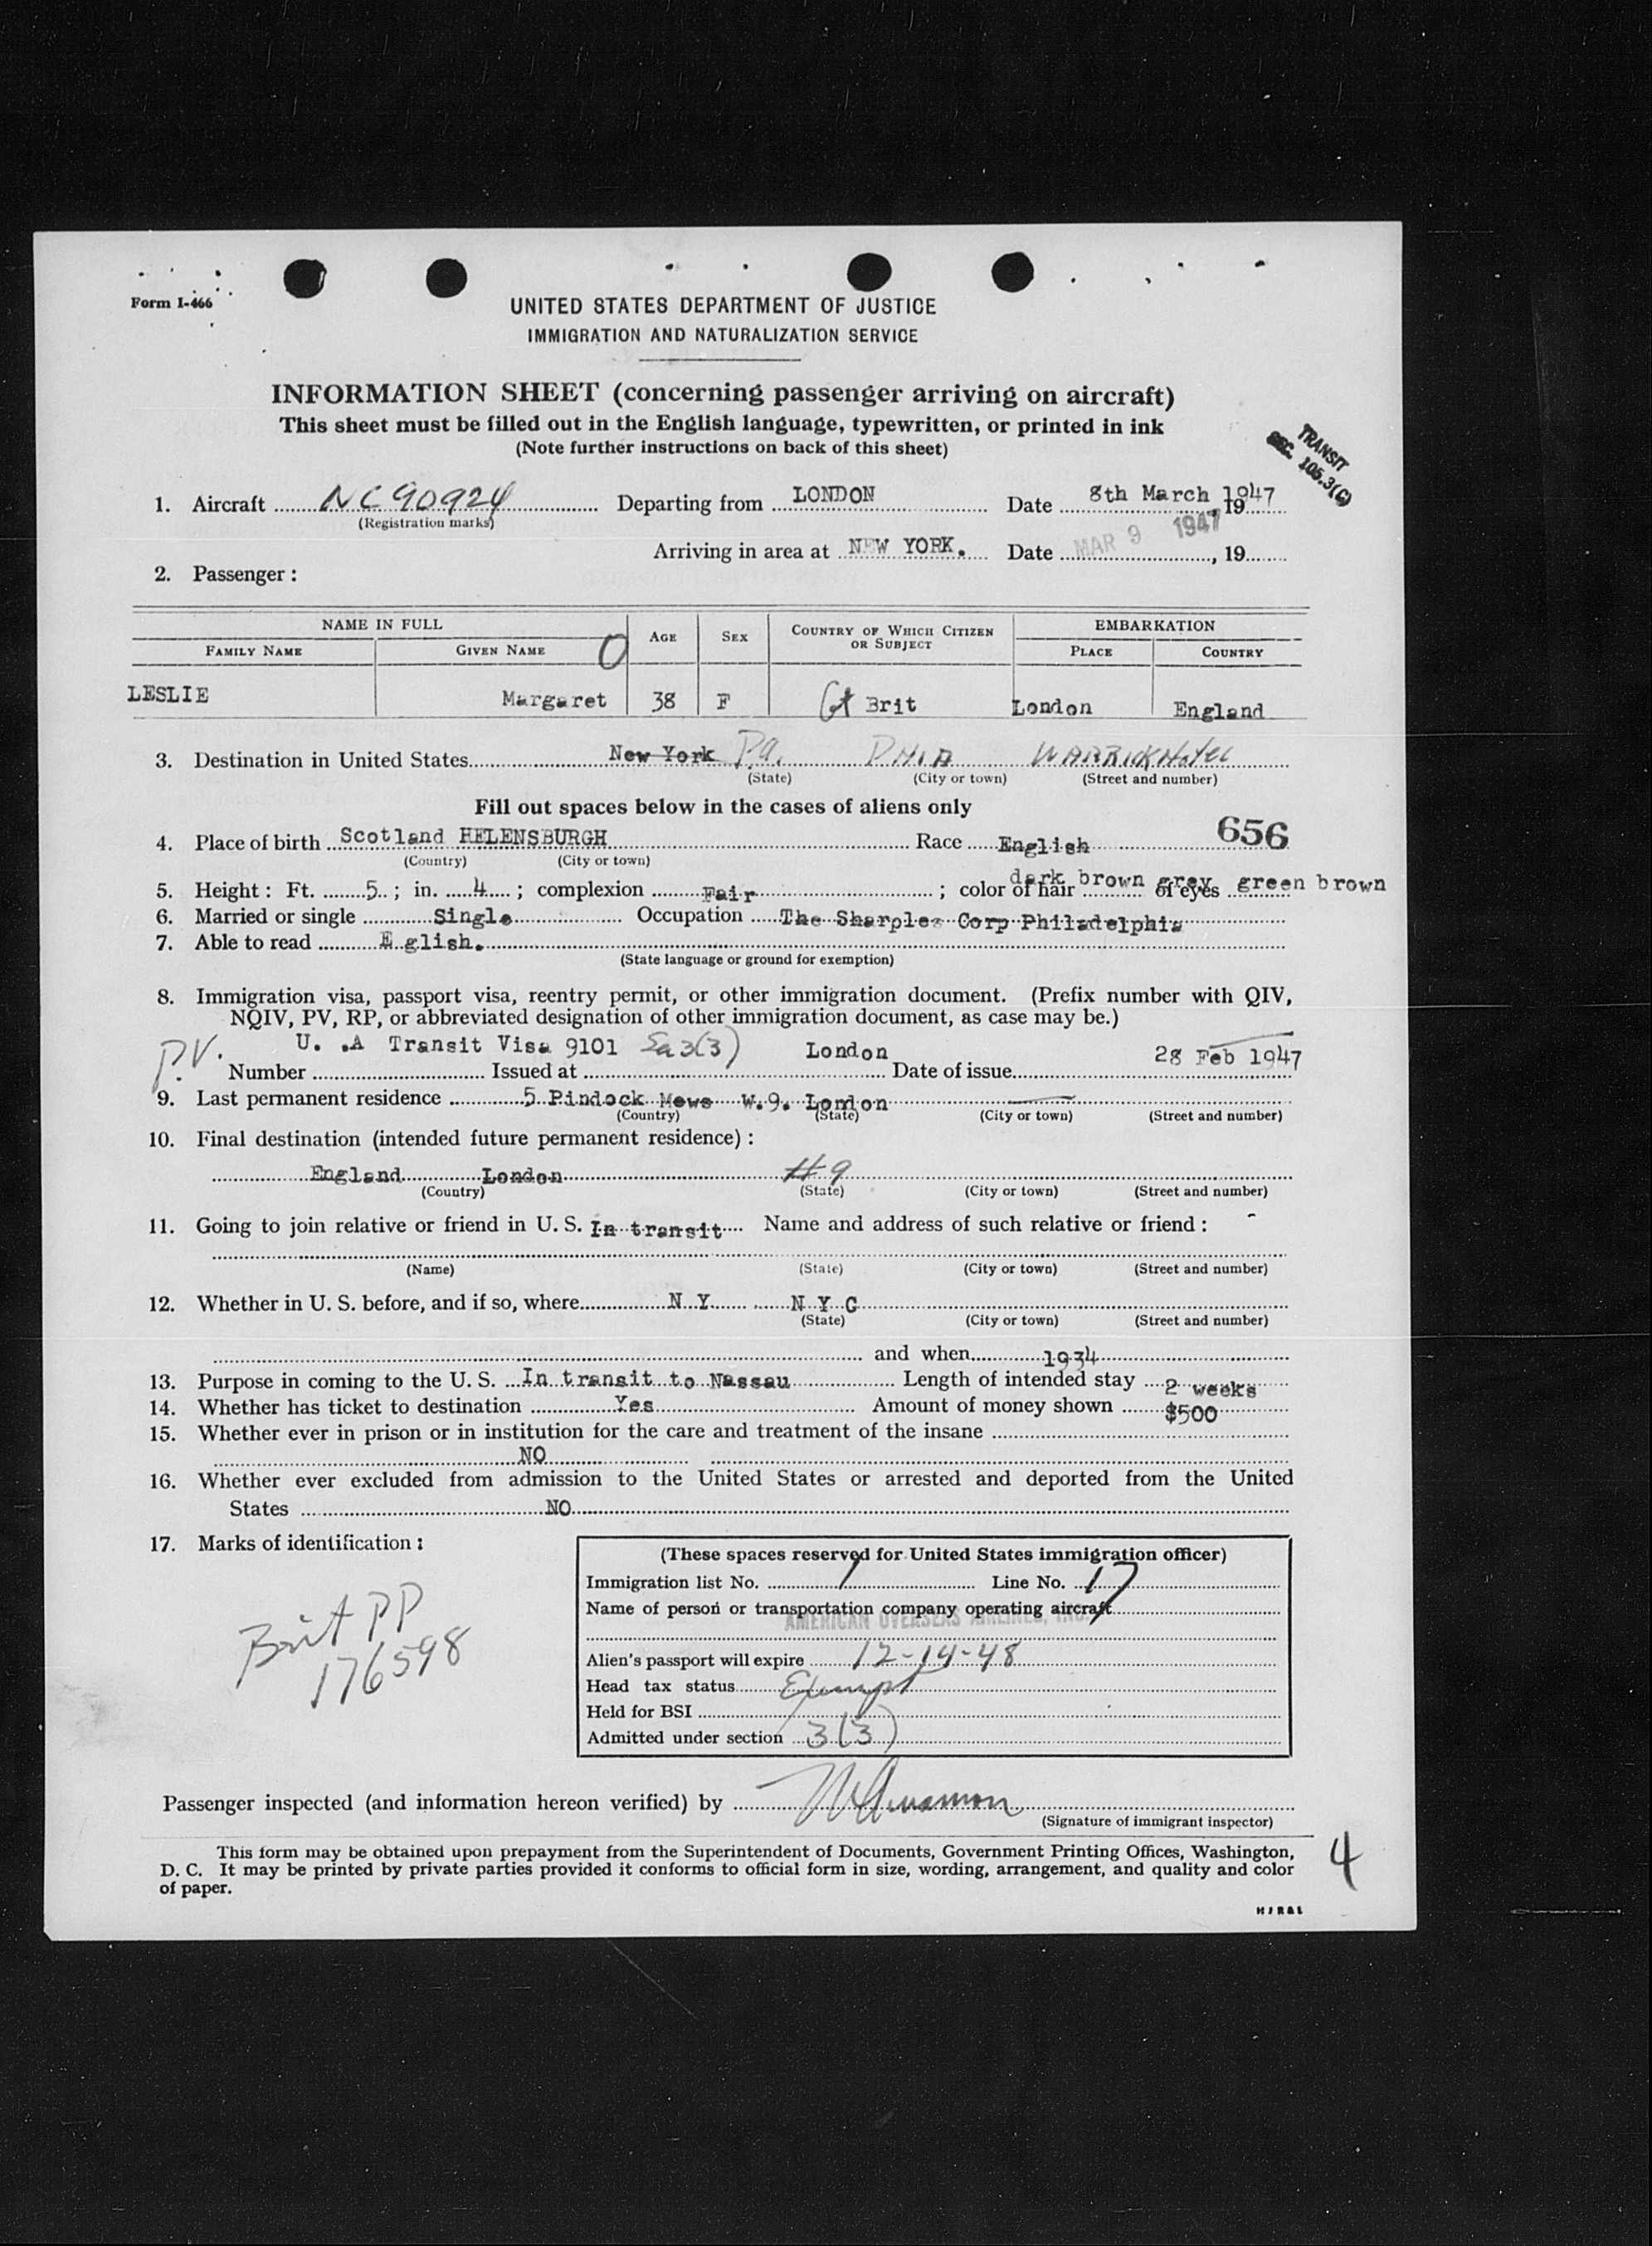 Form I-466
UNITED STATES DEPARTMENT OF JUSTICE
IMMIGRATION AND NATURALIZATION SERVICE
INFORMATION SHEET (concerning passenger arriving on aircraft)
This sheet must be filled out in the English language, typewritten, or printed in ink
(Note further instructions on back of this sheet)
TRANSIT
SEC. 105.3(C)
1. Aircraft NC90924 Departing from LONDON Date 8th March 1947, 19
(Registration marks)
Arriving in area at NEW YORK. Date MAR 9 1947, 19
2. Passenger:
NAME IN FULL AGE SEX COUNTRY OF WHICH CITIZEN OR SUBJECT EMBARKATION
FAMILY NAME GIVEN NAME PLACE COUNTRY
LESLIE Margaret 38 F Gt Brit London England
3. Destination in United States New York Pa. PHIA WARRICK Hotel
(State) (City or town) (Street and number)
Fill out spaces below in the cases of aliens only
656
4. Place of birth Scotland HELENSBURGH Race English
(Country) (City or town)
5. Height: Ft. 5; in. 4; complexion Fair; color of hair dark brown grey of eyes green brown
6. Married or single Single Occupation The Sharples Corp Philadelphia
7. Able to read E glish.
(State language or ground for exemption)
8. Immigration visa, passport visa, reentry permit, or other immigration document. (Prefix number with QIV,
NQIV, PV, RP, or abbreviated designation of other immigration document, as case may be.)
P.V. U. .A Transit Visa 9101 3(3) London 28 Feb 1947
Number Issued at Date of issue
9. Last permanent residence 5 Pindock Mews W.9. London
(Country) (State) (City or town) (Street and number)
10. Final destination (intended future permanent residence):
England London #9
(Country) (State) (City or town) (Street and number)
11. Going to join relative or friend in U. S. In transit Name and address of such relative or friend: -
(Name) (State) (City or town) (Street and number)
12. Whether in U. S. before, and if so, where N Y N Y C
(State) (City or town) (Street and number)
and when 1934
13. Purpose in coming to the U. S. In transit to Nassau Length of intended stay 2 weeks
14. Whether has ticket to destination Yes Amount of money shown $500
15. Whether ever in prison or in institution for the care and treatment of the insane
NO
16. Whether ever excluded from admission to the United States or arrested and deported from the United
States NO
17. Marks of identification:
Brit PP
176598
(These spaces reserved for United States immigration officer)
Immigration list No. 1 Line No. 17
Name of person or transportation company operating aircraft
AMERICAN OVERSEAS AIRLINES, INC.
Alien's passport will expire 12-14-48
Head tax status Exempt
Held for BSI
Admitted under section 3(3)
Passenger inspected (and information hereon verified) by
(Signature of immigrant inspector)
This form may be obtained upon prepayment from the Superintendent of Documents, Government Printing Offices, Washington,
D. C. It may be printed by private parties provided it conforms to official form in size, wording, arrangement, and quality and color
of paper.
4